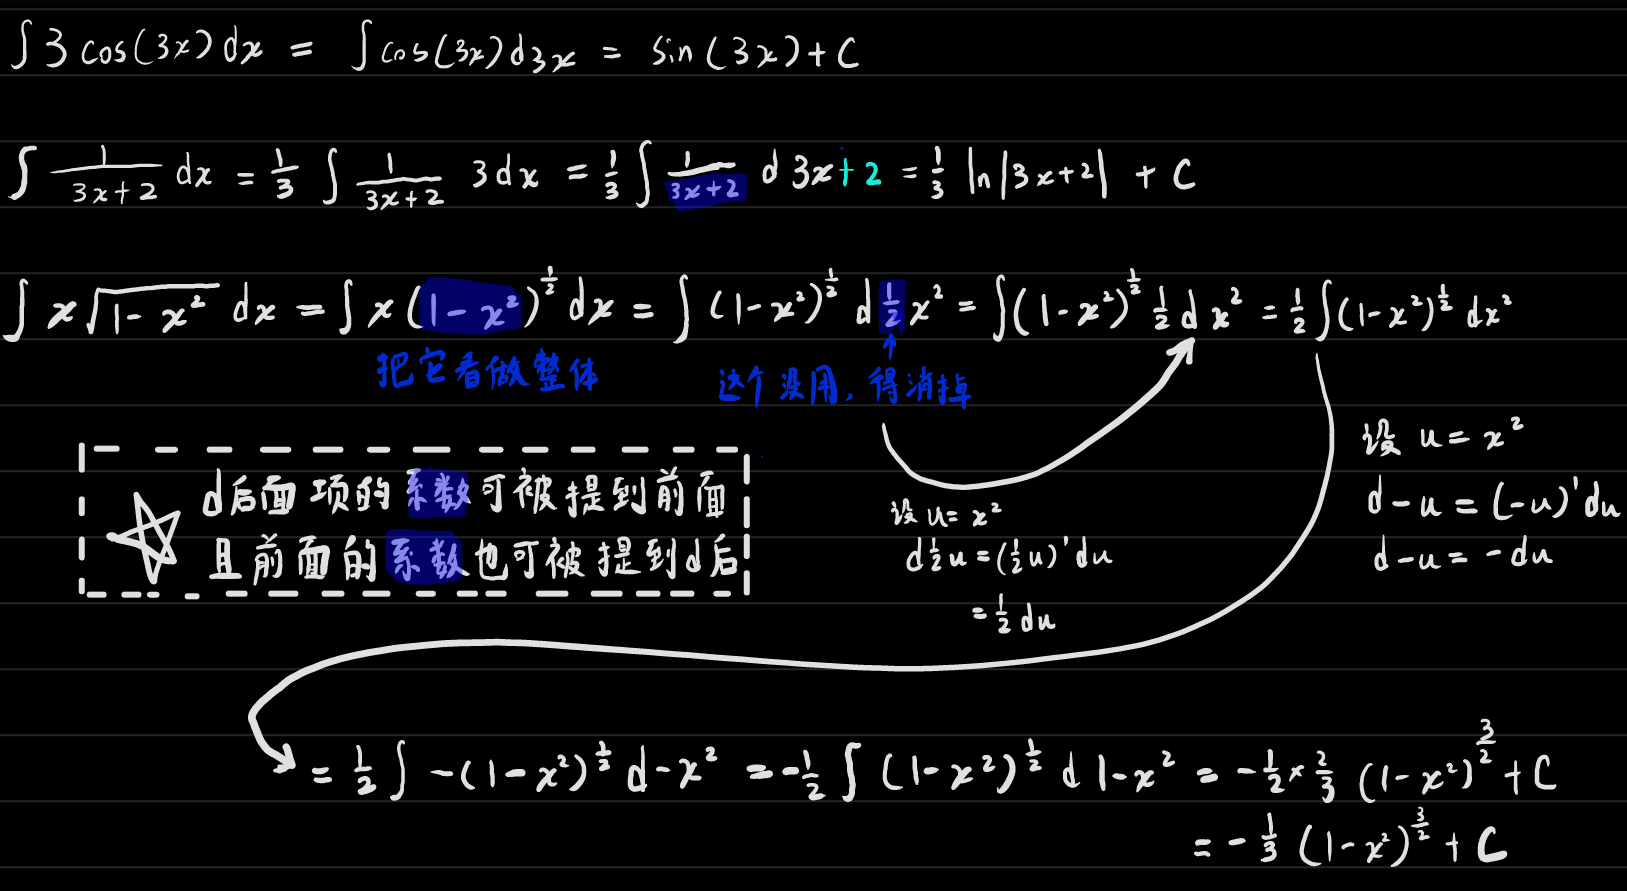 ∫ 3 cos(3x) dx = ∫ cos(3x) d3x = sin(3x) + C
∫ 1/(3x+2) dx = 1/3 ∫ 1/(3x+2) 3dx = 1/3 ∫ 1/(3x+2) d 3x+2 = 1/3 ln|3x+2| + C
∫ x√(1-x²) dx = ∫ x(1-x²)^(1/2) dx = ∫ (1-x²)^(1/2) d 1/2 x² = ∫ (1-x²)^(1/2) 1/2 d x² = 1/2 ∫ (1-x²)^(1/2) dx²
把它看做整体
这个没用，得消掉
☆ d后面项的系数可被提到前面
且前面的系数也可被提到d后
设 u = x²
d 1/2 u = (1/2 u)' du
= 1/2 du
设 u = x²
d-u = (-u)' du
d-u = -du
= 1/2 ∫ -(1-x²)^(1/2) d-x² = -1/2 ∫ (1-x²)^(1/2) d 1-x² = -1/2 × 2/3 (1-x²)^(3/2) + C
= -1/3 (1-x²)^(3/2) + C